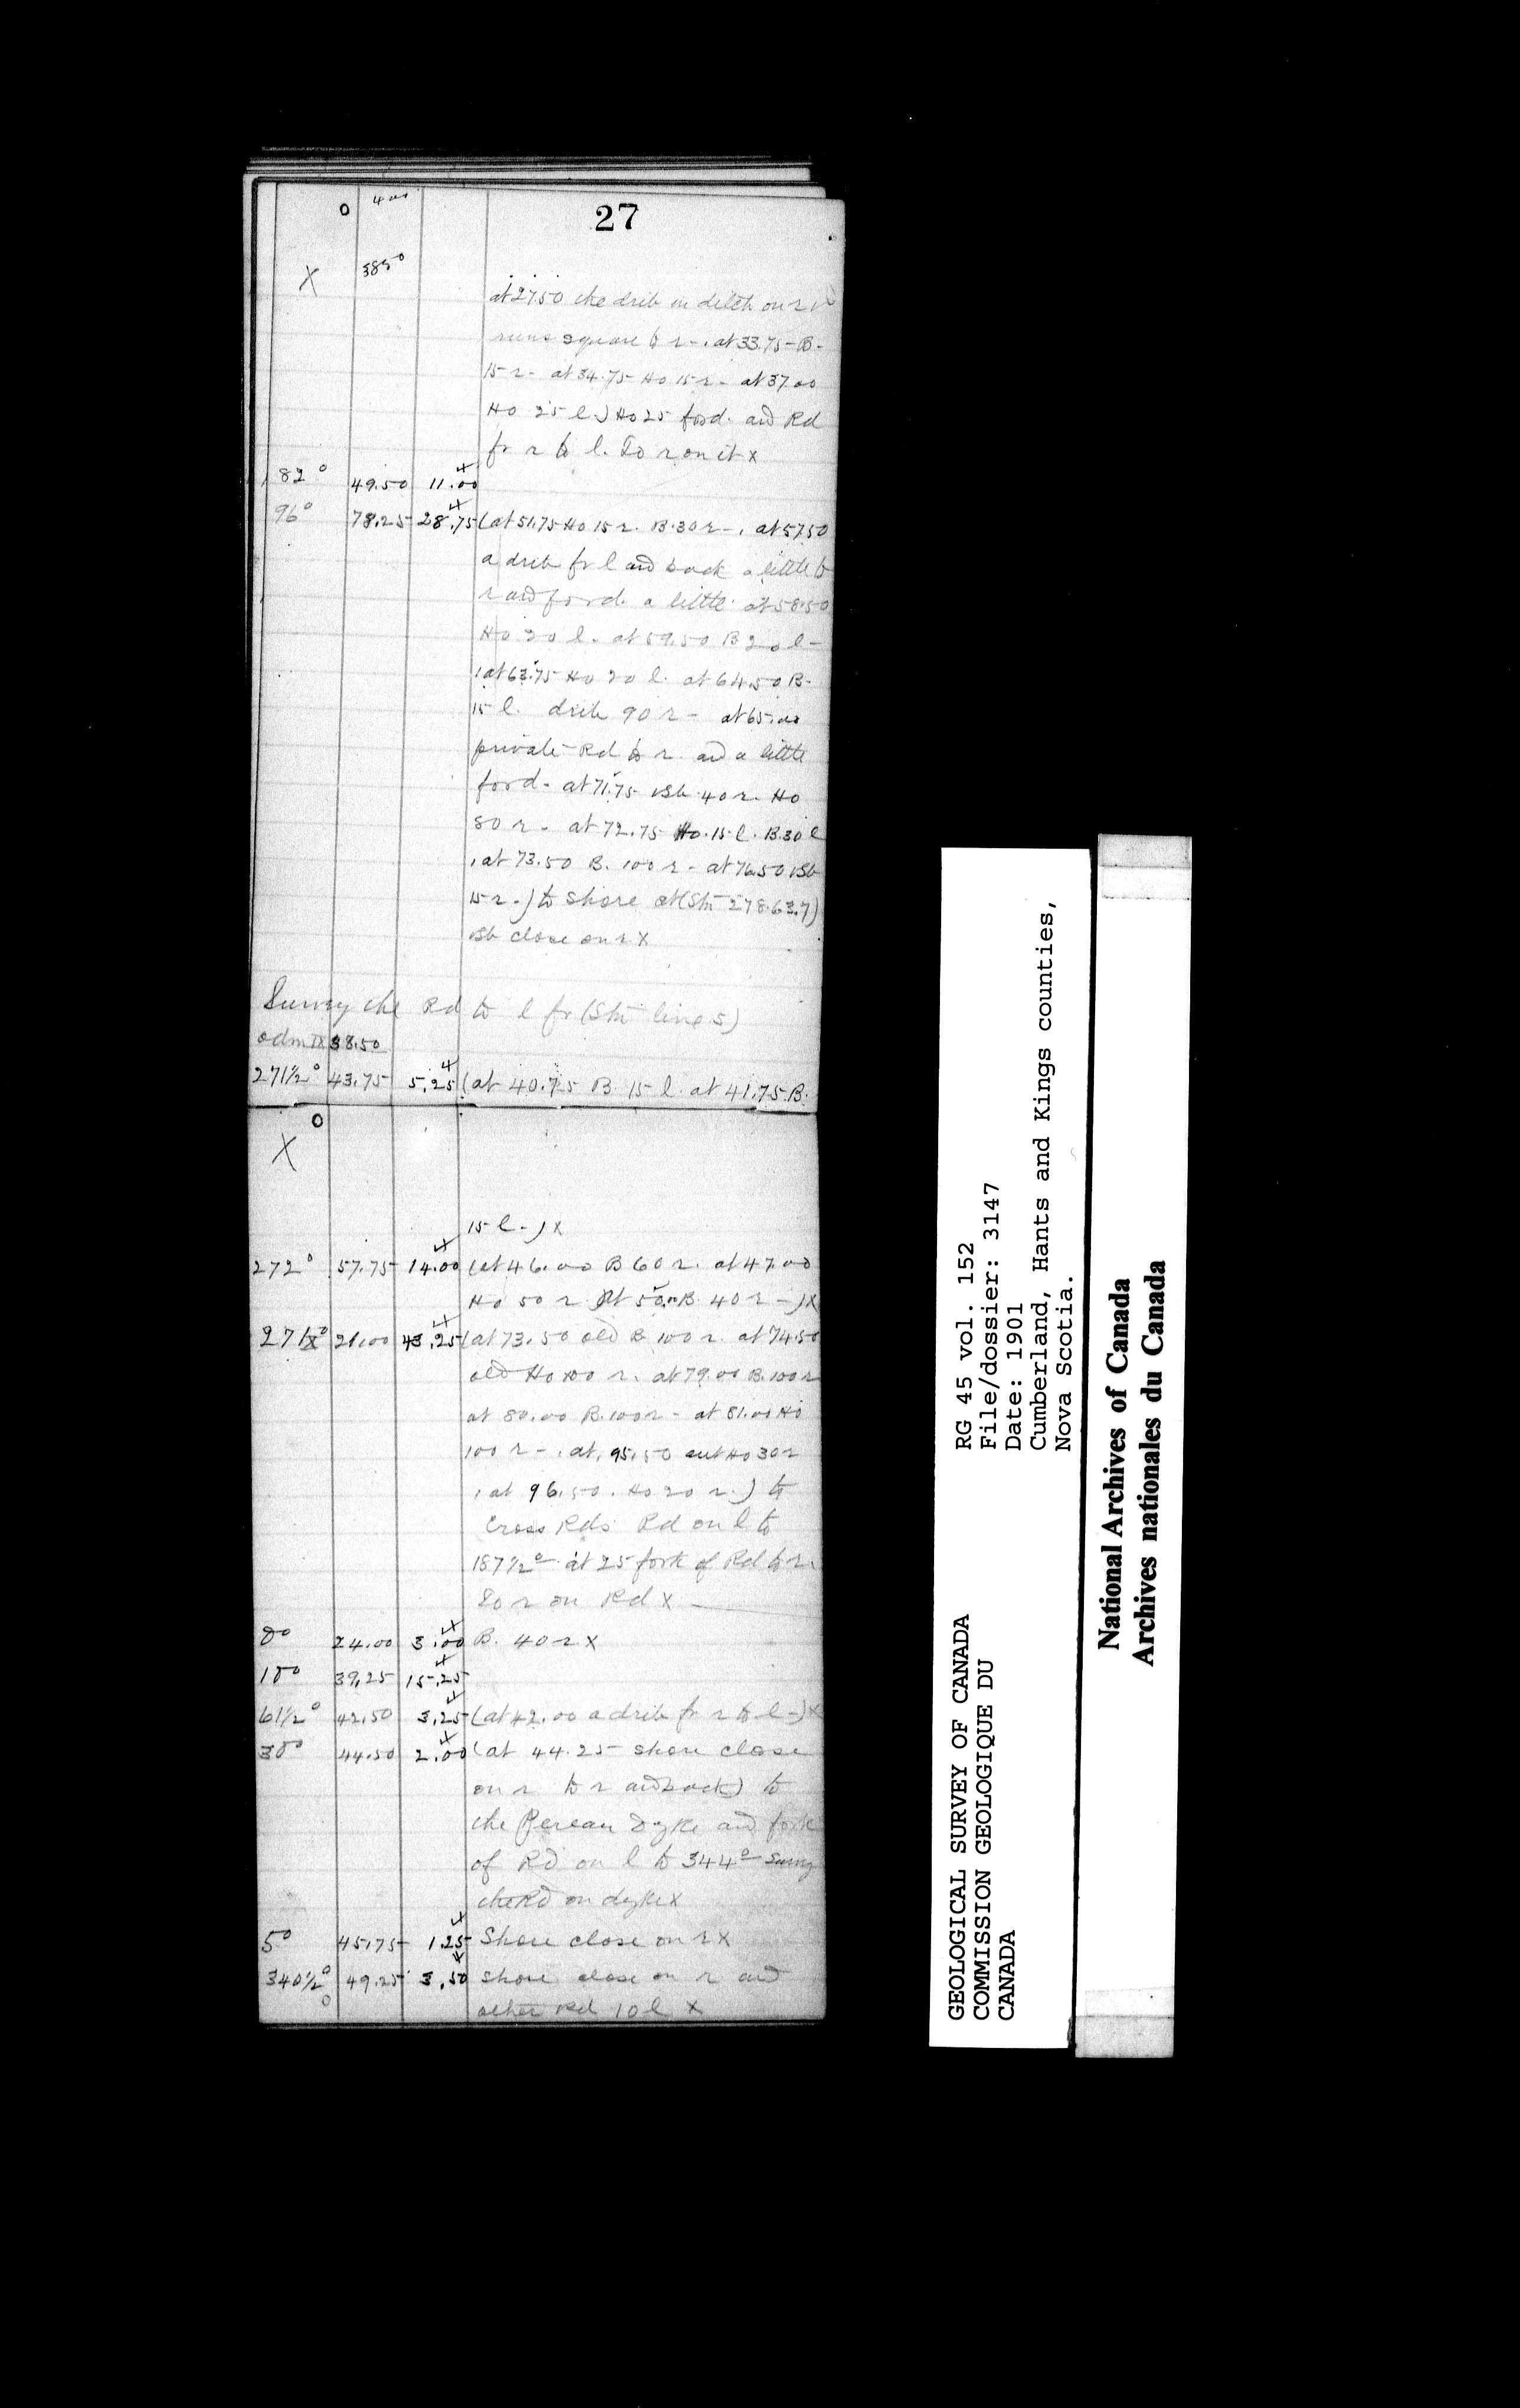 27
o 4.00
X 38.50
at 27.50 the drib in ditch on r
runs square to r - . at 33.75 - B -
15 r - at 34.75 Ho 15 r - at 37.00
Ho 25 l -) Ho 25 ford. and Rd
fr r to l. To r on it x
182° 49.50 11.00
96° 78.25 28.75 (at 51.75 Ho 15 r. B. 30 r - , at 57.50
a drib fr l and back a little to
r and ford. a little. at 58.50
Ho 20 l. at 59.50 B 20 l -
, at 63.75 Ho 20 l. at 64.50 B.
15 l. drib 90 r - at 65.00
private Rd to r. and a little
ford - at 71.75 Bsh 40 r. Ho
80 r - at 72.75 Ho. 15 l. B. 30 l
, at 73.50 B. 100 r - at 76.50 Bsh
15 r -) to Shore at (Stn 278.63.7)
Bsh close on r X
Survey the Rd to l fr (Stn line 5)
odm 38.50
271½° 43.75 5.25 (at 40.75 B 15 l. at 41.75 B.
o
X
15 l -) x
272° 57.75 14.00 (at 46.00 B 60 r. at 47.00
Ho 50 r at 50.00 B. 40 r -) x
271° 21.00 43.25 (at 73.50 old B 100 r. at 74.50
old Ho 100 r. at 79.00 B. 100 r
at 80.00 B. 100 r - at 81.00 Ho
100 r - . at 95.50 Ho 30 r
, at 96.50. Ho 20 r.) to
Cross Rds Rd on l to
187½° at 25 fork of Rd to r.
80 r on Rd X
8° 24.00 3.00 B. 40 r X
18° 39.25 15.25
61½° 42.50 3.25 (at 42.00 a drib fr r to l -) x
38° 44.50 2.00 (at 44.25 shore close
on r to r and back) to
the Pereau Dyke and fork
of Rd on l to 344° survey
the Rd on dyke x
5° 45.75 1.25 Shore close on r X
340½° 49.25 3.50 shore close on r and
o other Rd 10 l x
GEOLOGICAL SURVEY OF CANADA
COMMISSION GEOLOGIQUE DU
CANADA
RG 45 vol. 152
File/dossier: 3147
Date: 1901
Cumberland, Hants and Kings counties,
Nova Scotia.
National Archives of Canada
Archives nationales du Canada